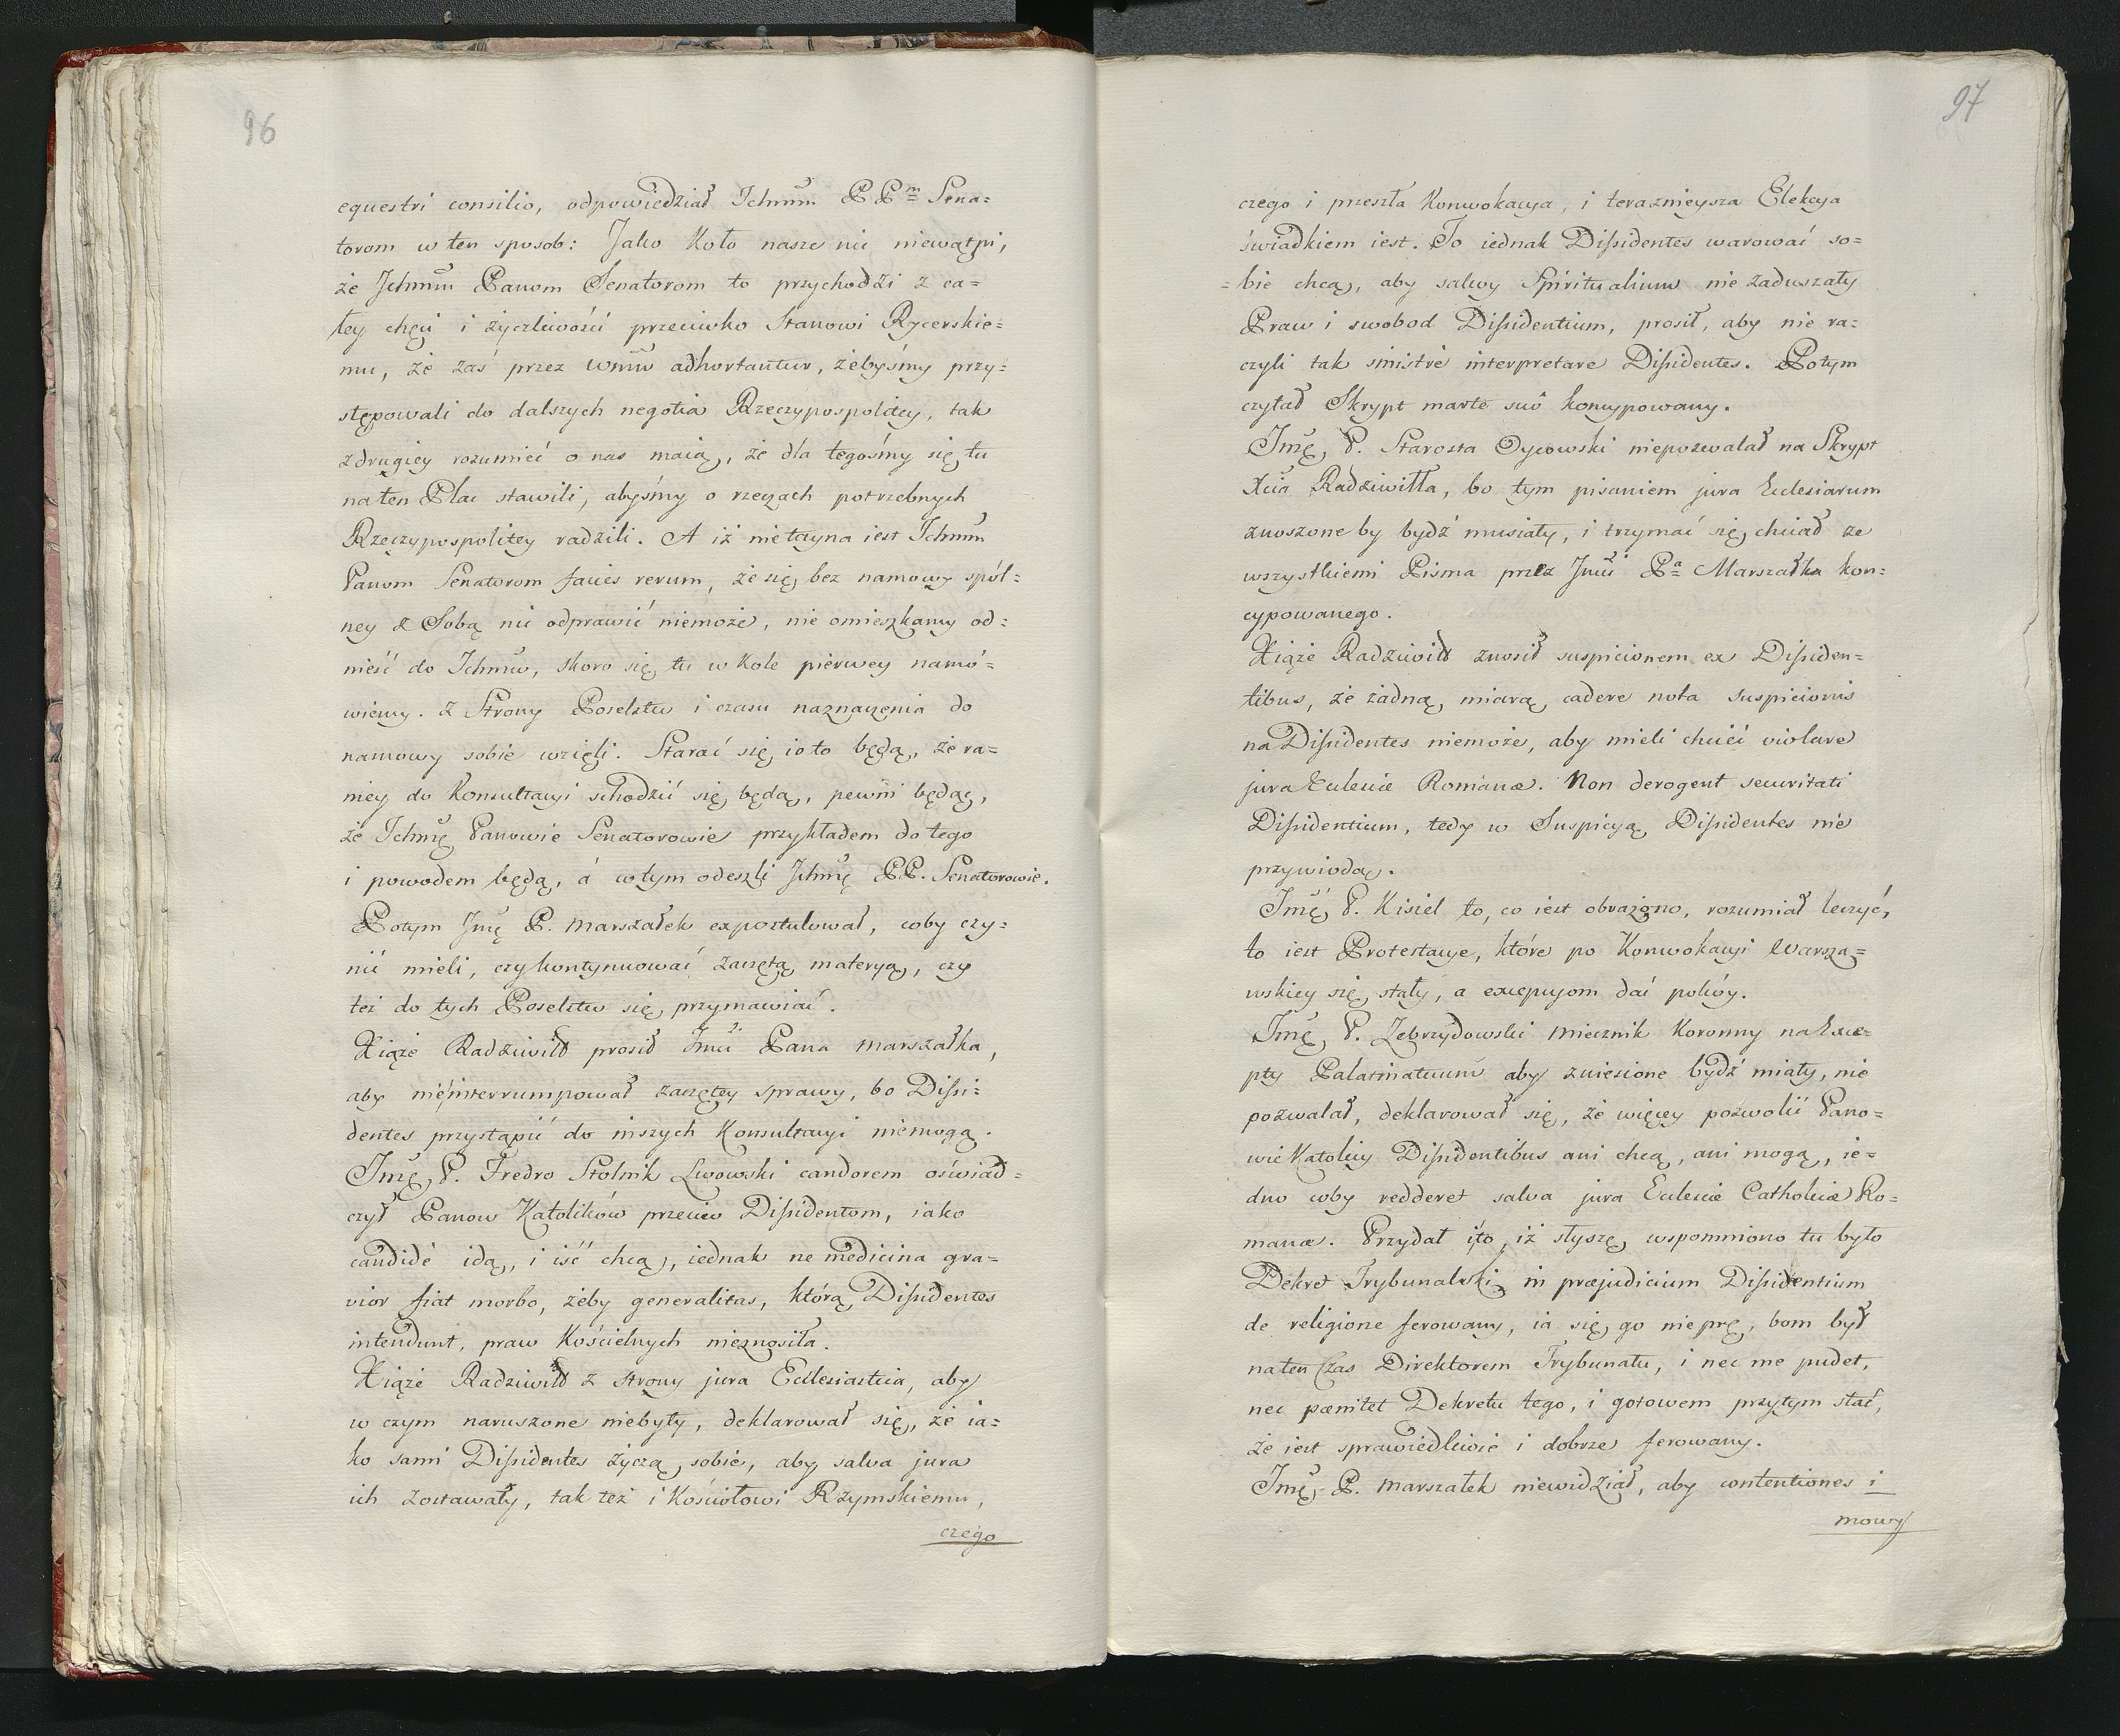 96
equestri consilio, odpowiedział Ichmm P P<sup>m</sup> Sena=
torom w ten sposob: Jako Koło nasze nic niewątpi,
że Ichmm Panom Senatorom to przychodzi z ca=
łey chęci i życzliwości przeciwko Stanowi Rycerskie=
mu, że zaś przez Wmm adhortantur, żebyśmy przy=
stępowali do dalszych negotia Rzeczypospolitey, tak
z drugiey rozumieć o nas maią, że dla tegośmy się tu
na ten Plac stawili, abyśmy o rzeczach potrzebnych
Rzeczypospolitey radzili. A iż nietayna iest Ichmm
Panom Senatorom facies rerum, że się bez namowy spól=
ney z Sobą nic odprawić niemoże, nie omieszkamy od=
nieść do Ichmw, skoro się tu w Kole pierwey namó=
wiemy. z Strony Poselstw i czasu naznaczenia do
namowy sobie wzięli. Starać się io to będą, że ra=
niey do Konsultacyi schodzić się będą, pewni będąc,
że Ichmę Panowie Senatorowie przykładem do tego
i powodem będą, á wtym odeszli Ichmę PP. Senatorowie.
Potym Jmę P. Marszałek expostulował, coby czy=
nić mieli, czy kontynuować zaczętą materyą, czy
też do tych Poselstw się przymawiać.
Xiąże Radziwiłł prosił Jmci Pana Marszałka,
aby nieinterrumpował zaczętey sprawy, bo Dissi=
dentes przystąpić do inszych Konsultacyi niemogą.
Jmę P. Fredro Stolnik Lwowski candorem oświad=
czył Panow Katolików przeciw Dissidentom, iako
candidè idą, i iść chcą, iednak ne medicina gra=
vior fiat morbo, żeby generalitas, którą Dissidentes
intendunt, praw Kościelnych nieznosiła.
Xiąże Radziwiłł z strony jura Ecclesiastica, aby
w czym naruszone niebyły, deklarował się, że ia=
ko sami Dissidentes życzą sobie, aby salva jura
ich zostawały, tak też i Kościołowi Rzymskiemu,
czego
97
czego i przeszła Konwokacya, i teraznieysza Elekcya
świadkiem iest. To iednak Dissidentes warować so=
=bie chcą, aby salwy Spiritualium nie zaduszały
Praw i swobod Dissidentium, prosił, aby nie ra=
czyli tak sinistrè interpretare Dissidentes. Potym
czytał Skrypt marte suô koncypowany.
Jmę P. Starosta Oycowski niepozwalał na Skrypt
Xcia Radziwiłła, bo tym pisaniem jura Ecclesiarum
znoszone by bydź musiały, i trzymać się chciał ze
wszystkiemi Pisma przez Jmci P<sup>a</sup> Marszałka kon=
cypowanego.
Xiąże Radziwiłł znosił suspicionem ex Dissiden=
tibus, że żadną miarą cadere nota suspicionis
na Dissidentes niemoże, aby mieli chcieć violare
jura Ecclesiæ Romanæ. Non derogent securitati
Dissidentium, tedy w Suspicyą Dissidentes nie
przywiodą.
Jmć P. Kisiel to, co iest obrażono, rozumiał leczyć,
to iest Protestacye, które po Konwokacyi Warsza=
wskiey się stały, a excepcyom dać pokóy.
Jmę P. Zebrzydowski Miecznik Koronny na Exce=
pty Palatinatuum aby zniesione bydź miały, nie
pozwalał, deklarował się, że więcey pozwolić Pano=
wie Katolicy Dissidentibus ani chcą, ani mogą, ie=
dno coby redderet salva jura Ecclesiæ Catholicæ Ro=
manæ. Przydał i to, iż słyszę, wspomniono tu było
Dekret Trybunalski in præjudicium Dissidentium
de religione ferowany, ia się go nieprę, bom był
na ten Czas Direktorem Trybunału, i nec me pudet,
nec pænitet Dekretu tego, i gotowem przytym stać,
że iest sprawiedliwie i dobrze ferowany.
Jmę P. Marszałek niewidział, aby contentiones i
mowy